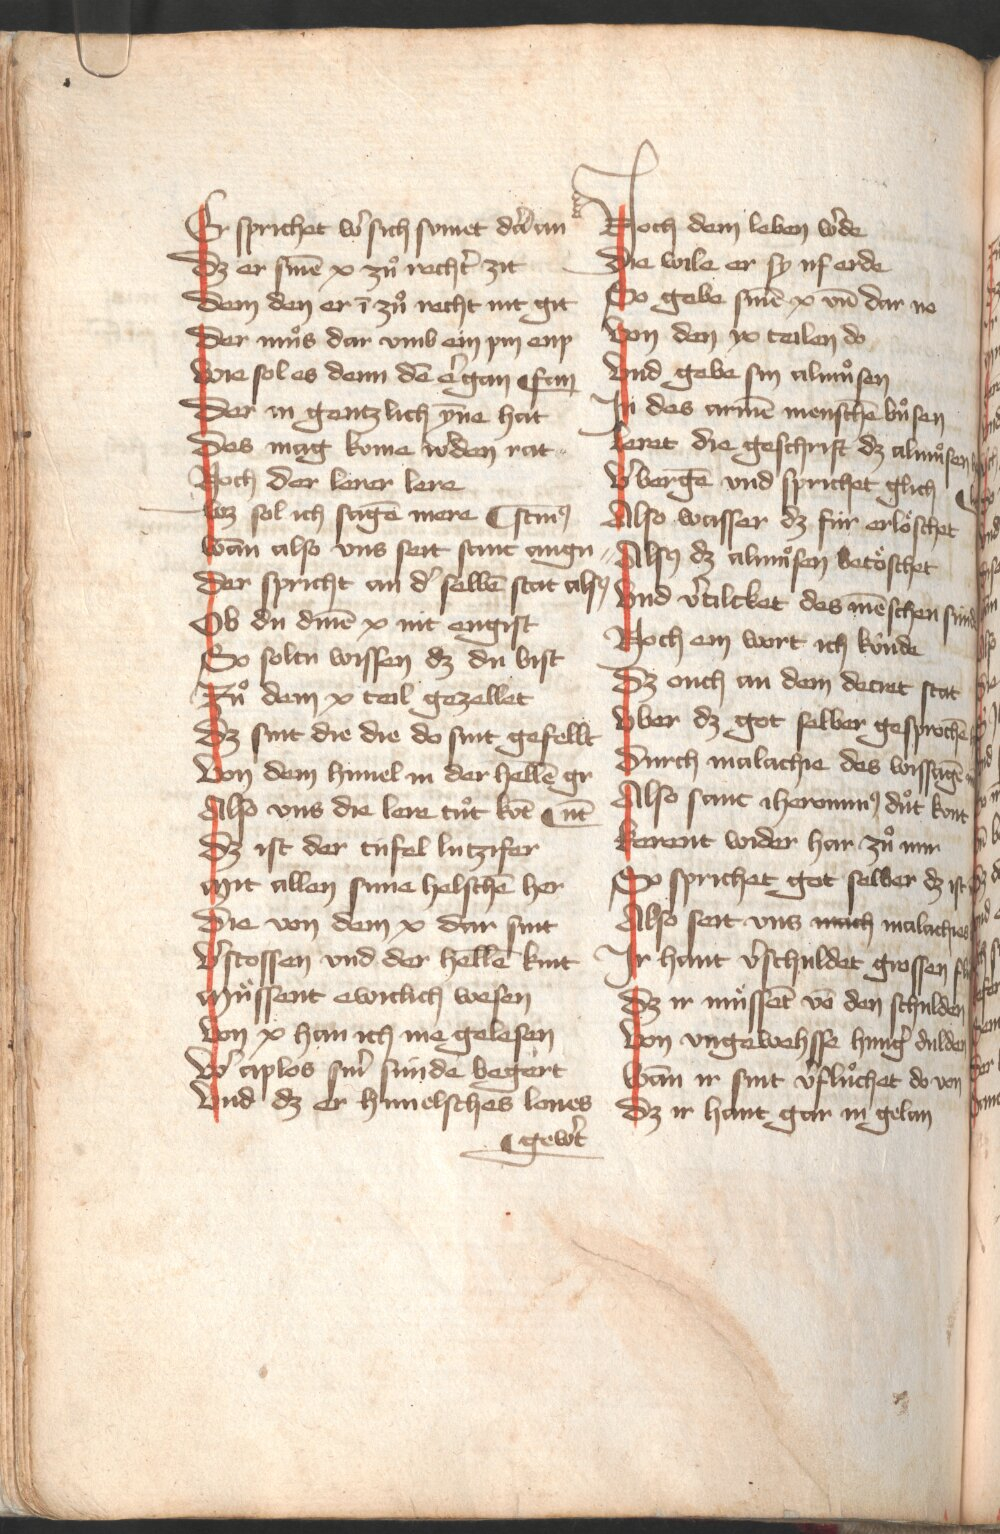 Er sprichet w͛ sich sumet dar an
Dz er sinē x zuͦ recht͛ zit
Dem den er ī zuͦ recht nit git
Der muͦs dar vmb ein pin enp
Wie sol es denn dē ergan ¶ fan
Der in gentzlich yñe hat
Des mag kome w͛den rat
Noch der lerer lere
Wz sol ich sagē mere ¶ stinꝰ
Wān also vns seit sant augu
Der spricht an d͛ selbē stat also
Ob du dinē x nit engist
So soltu wissen dz du bist
Zuͦ dem x teil gezellet
Dz sint die die do sint gefellt
Von dem himel in der hellē gr
Also vns die lere tuͦt kōt ¶ ūt
Dz ist der tüfel lutzifer
Mit allen sime helschē her
Die von dem x dar sint
V͛stossen vnd der hellē kint
Muͤssent ewiclich wesen
Von x han ich me gelesen
W͛ aplos sin͛ sünde begert
Vnd dz er himelsches lones
¶ gew͛t
Noch dem leben w͛de
Die wile er sy uf erde
So gebe sinē x vn̄ dar no
Von den ix teilen do
Vnd gebe sin almuͦsen
In des armē menschē buͦsen
Leret die geschrift dz almuͦsen
V͛bergē vnd sprichet glich
Also wasser dz für erlöschet
Also dz almuͦsen vertöschet
Vnd v͛tilcket des mēschen sünd
Noch ein wort ich könde
Dz ouch an dem decret stat
Vber dz got selber gesprochē
Durch malachie des wissagē
Also sant iheronimꝰ duͦt kont
Kerent wider har zuͦ mir
So sprichet got selber dz ist
Also seit vns mach malachies
Ir hant v͛schuldet grossen flu
Dz ir muͤssēt vō den schulden
Von vngewehsse hung͛ dulden
Wān ir sint v͛fluͦchet do von
Dz ir hant gar in gelan